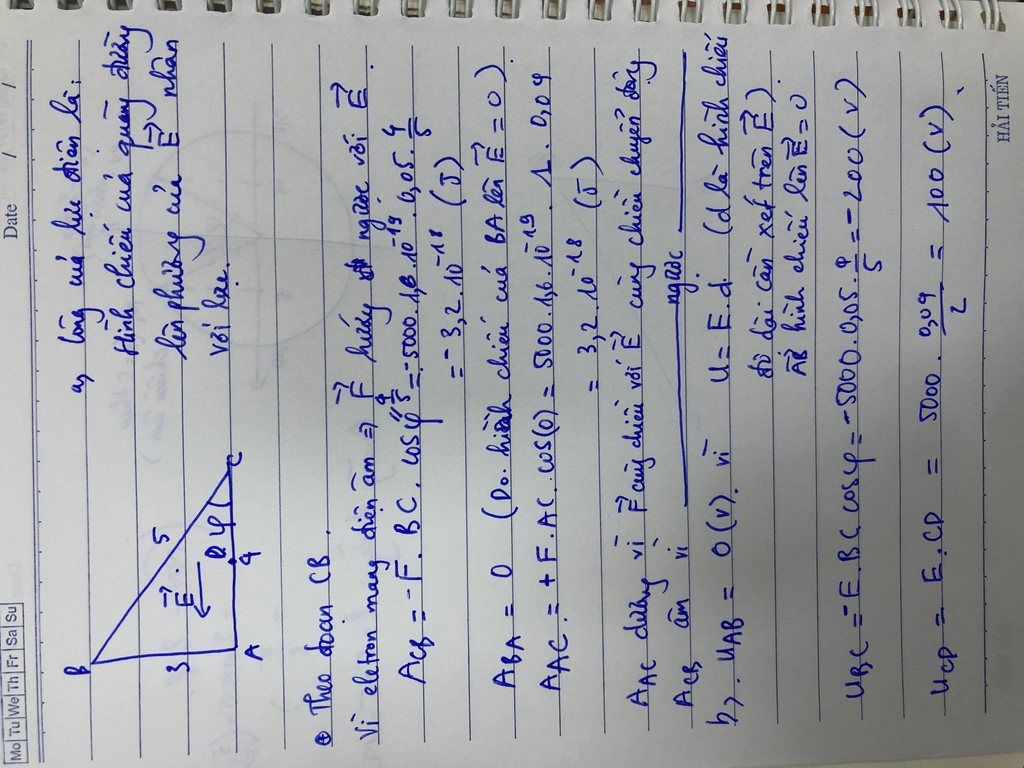 Mo Tu We Th Fr Sa Su
Date / /
a, Công của lực điện là:
Hình chiếu của quãng đường
lên phương của E→ nhân
với lực.
B
5
3
E→
D
φ
C
A
4
⊕ Theo đoạn CB.
Vì eletron mang điện âm ⇒ F→ hướng ngược với E→.
A_CB = -F.BC.cosφ = -5000.1,6.10^-19.0,05.4/5
4/5
= -3,2.10^-18 (J)
A_BA = 0 (Do hình chiếu của BA lên E→ = 0).
A_AC = +F.AC.cos(0) = 5000.1,6.10^-19.1.0,04
= 3,2.10^-18 (J)
A_AC dương vì F→ cùng chiều với E→ cùng chiều chuyển động
A_CB âm vì ——— ngược ———
b, U_AB = 0(V). vì U = E.d. (d là hình chiếu
độ dài cần xét trên E→)
AB→ hình chiếu lên E→ = 0
U_BC = -E.BC cosφ = -5000.0,05.4/5 = -200(V)
U_CD = E.CD = 5000.0,04/2 = 100(V).
HẢI TIẾN